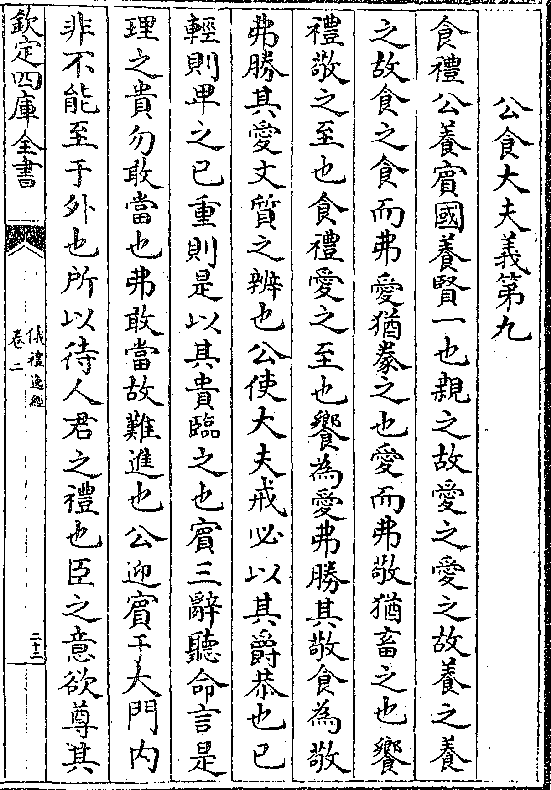 公食大夫義第九
食禮公養賓國養賢一也親之故愛之愛之故養之養
之故食之食而弗愛猶豢之也愛而弗敬猶畜之也饗
禮敬之至也食禮愛之至也饗為愛弗勝其敬食為敬
弗勝其愛文質之辨也公使大夫戒必以其爵恭也已
輕則卑之已重則是以其貴臨之也賓三辭聽命言是
理之貴勿敢當也弗敢當故難進也公迎賓于大門内
非不能至于外也所以待人君之禮也臣之意欲尊其
欽定四庫全書
儀禮逸經
卷二
二十二